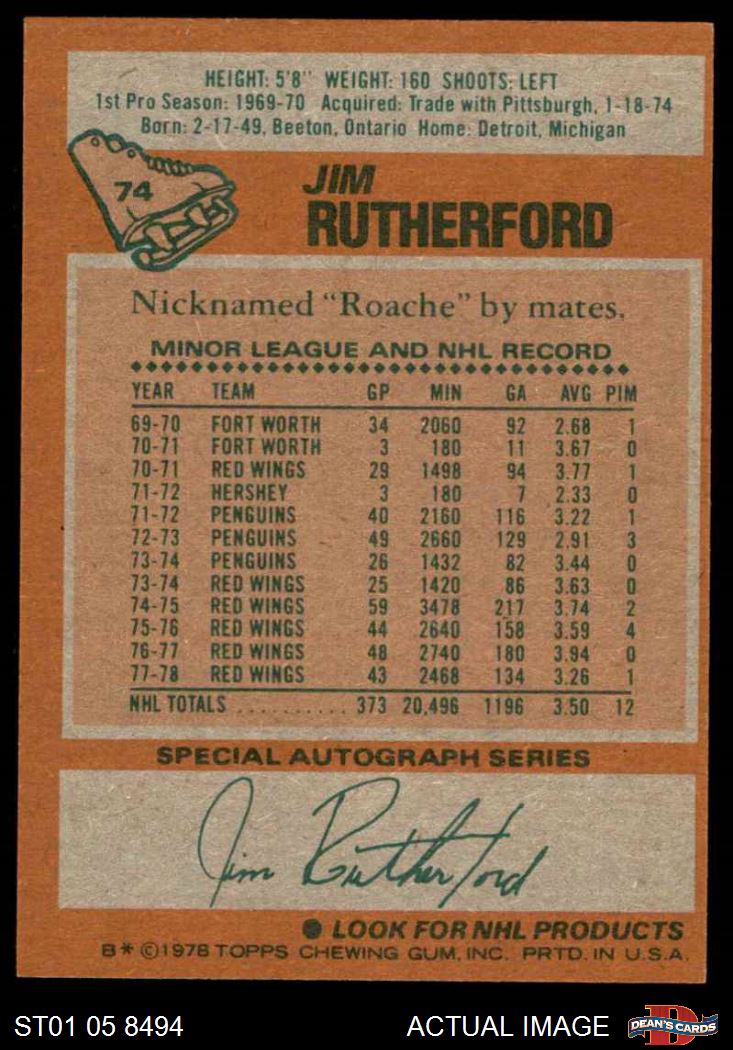 HEIGHT: 5'8" WEIGHT: 160 SHOOTS: LEFT
1st Pro Season: 1969-70 Acquired: Trade with Pittsburgh, 1-18-74
Born: 2-17-49, Beeton, Ontario Home: Detroit, Michigan
74
JIM
RUTHERFORD
Nicknamed "Roache" by mates.
MINOR LEAGUE AND NHL RECORD
YEAR TEAM GP MIN GA AVG PIM
69-70 FORT WORTH 34 2060 92 2.68 1
70-71 FORT WORTH 3 180 11 3.67 0
70-71 RED WINGS 29 1498 94 3.77 1
71-72 HERSHEY 3 180 7 2.33 0
71-72 PENGUINS 40 2160 116 3.22 1
72-73 PENGUINS 49 2660 129 2.91 3
73-74 PENGUINS 26 1432 82 3.44 0
73-74 RED WINGS 25 1420 86 3.63 0
74-75 RED WINGS 59 3478 217 3.74 2
75-76 RED WINGS 44 2640 158 3.59 4
76-77 RED WINGS 48 2740 180 3.94 0
77-78 RED WINGS 43 2468 134 3.26 1
NHL TOTALS .......... 373 20,496 1196 3.50 12
SPECIAL AUTOGRAPH SERIES
Jim Rutherford
● LOOK FOR NHL PRODUCTS
B* ©1978 TOPPS CHEWING GUM, INC. PRTD. IN U.S.A.
ST01 05 8494 ACTUAL IMAGE DEAN'S CARDS